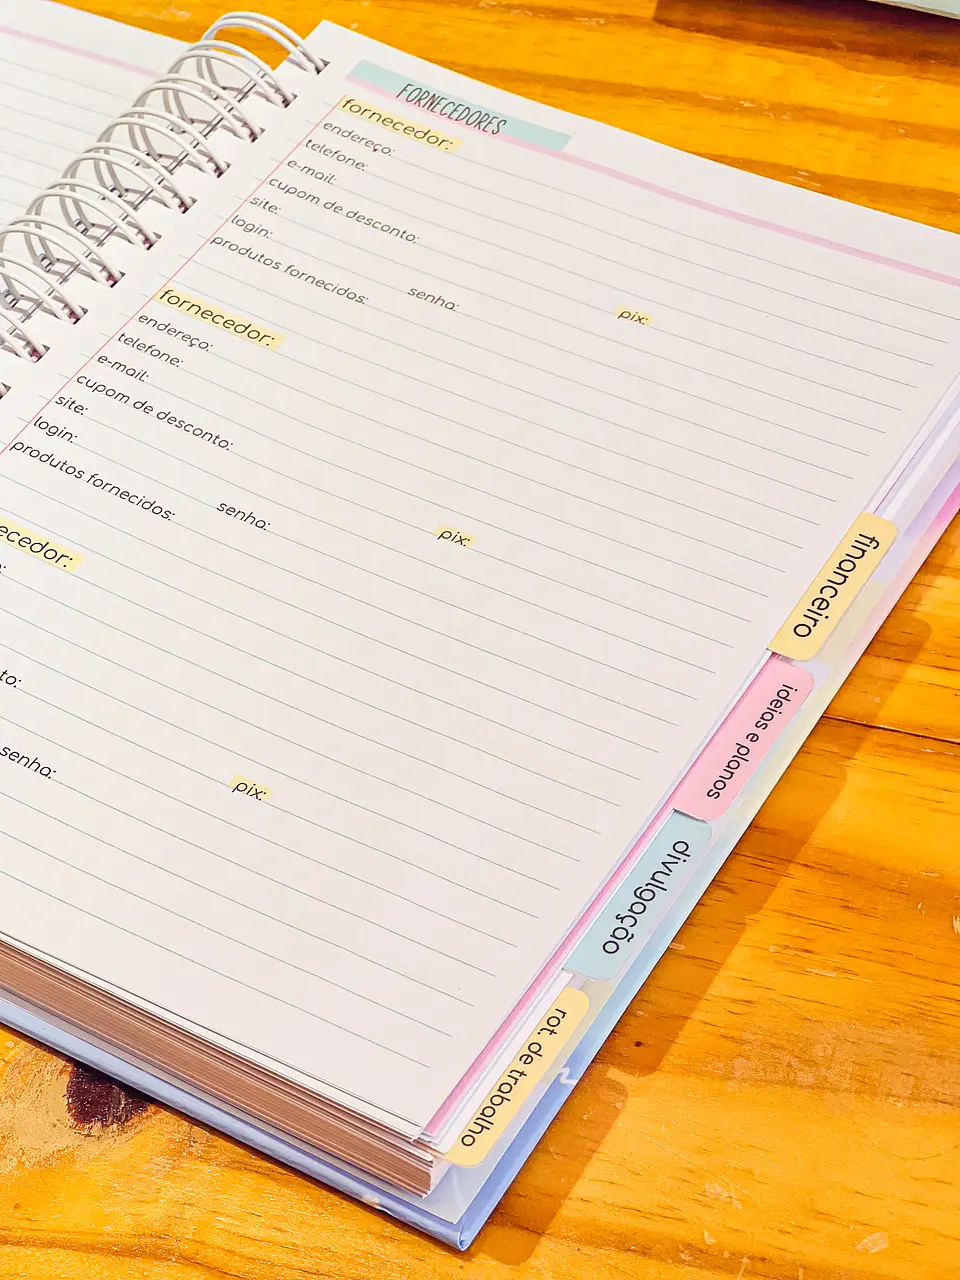 FORNECEDORES
fornecedor:
endereço:
telefone:
e-mail:
cupom de desconto:
site:
login: senha: pix:
produtos fornecidos:
fornecedor:
endereço:
telefone:
e-mail:
cupom de desconto:
site:
login: senha: pix:
produtos fornecidos:
ecedor:
to:
senha: pix:
financeiro
ideias e planos
divulgação
rot. de trabalho